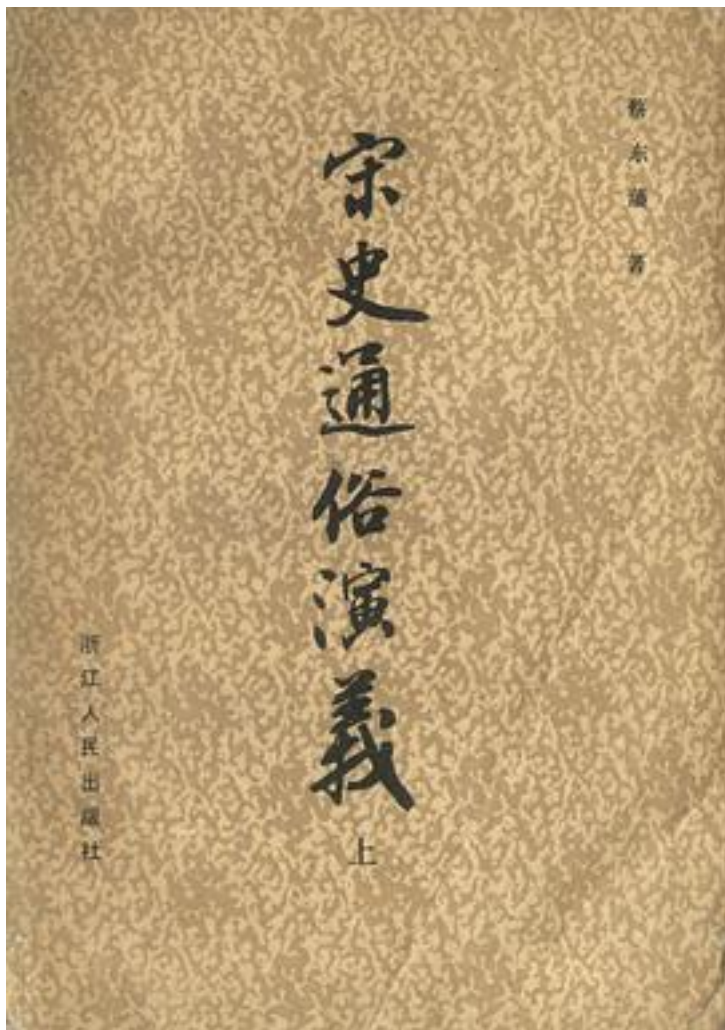 蔡东藩 著
宋史通俗演義
上
浙江人民出版社